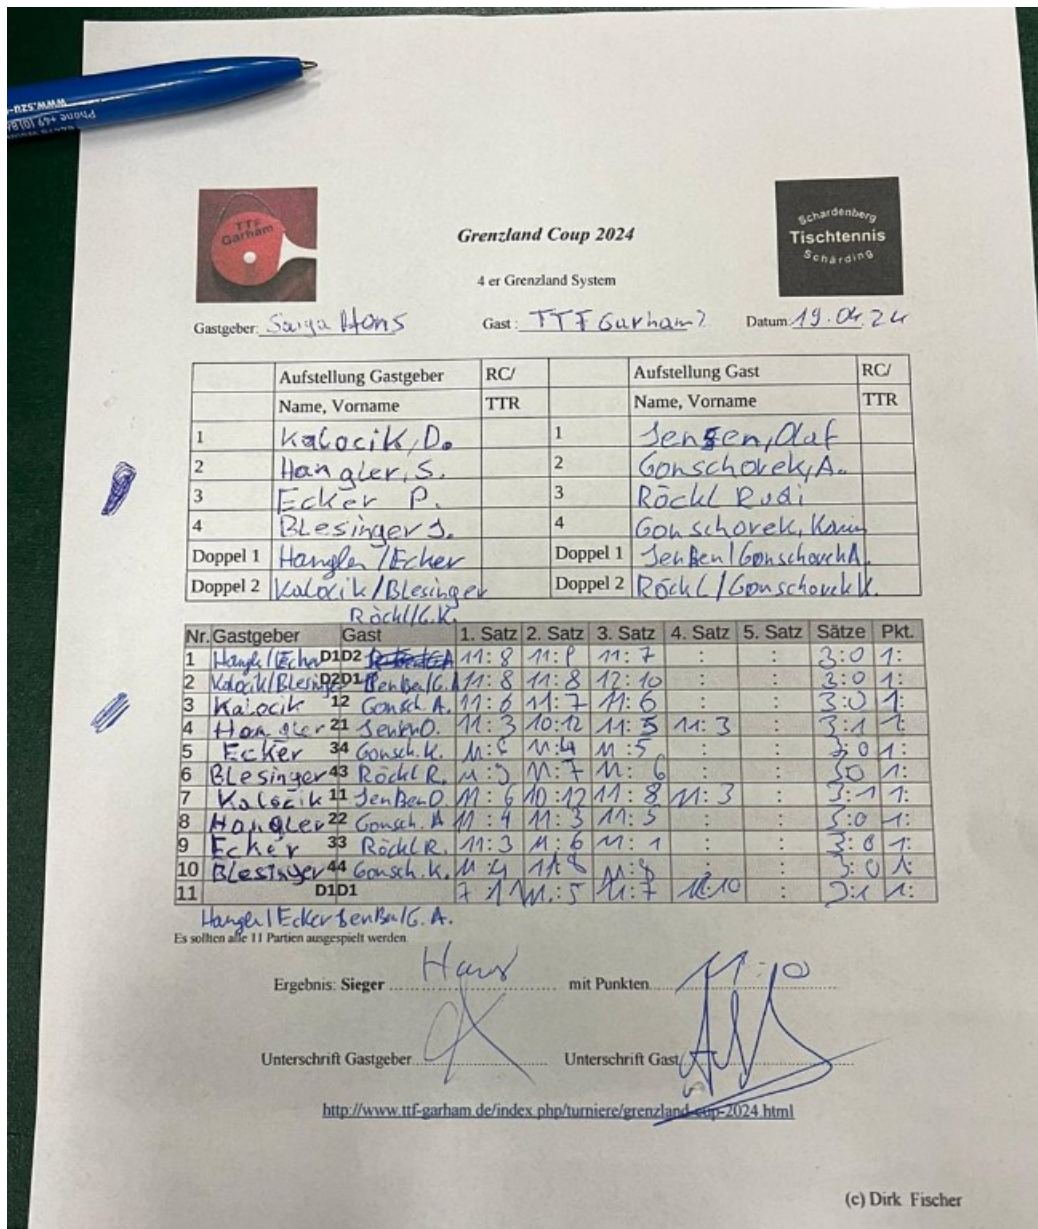 www.szu-
Phone +49 (0)8
TTF
Garham
Grenzland Coup 2024
4 er Grenzland System
Schardenberg
Tischtennis
Schärding
Gastgeber: Hans Gast: TTF Garham 2 Datum: 19.04.24
Aufstellung Gastgeber RC/ Aufstellung Gast RC/
Name, Vorname TTR Name, Vorname TTR
1 Kalocik, D. 1 Jensen, Olaf
2 Hangler, S. 2 Gonschorek, A.
3 Ecker P. 3 Röckl Rudi
4 Blesinger J. 4 Gonschorek, Karin
Doppel 1 Hangler/Ecker Doppel 1 Jenßen/Gonschorek A.
Doppel 2 Kalocik/Blesinger Doppel 2 Röckl/Gonschorek K.
Röckl/G.K.
Nr. Gastgeber Gast 1. Satz 2. Satz 3. Satz 4. Satz 5. Satz Sätze Pkt.
1 Hangler/Ecker D1D2 11:8 11: 11:7 : : 3:0 1:
2 Kalocik/Blesinger D2D1 Jenßen/G.A 11:8 11:8 12:10 : : 3:0 1:
3 Kalocik 12 Gonsch. A. 11:6 11:7 11:6 : : 3:0 1:
4 Hangler 21 Jenßen O. 11:3 10:12 11:5 11:3 : 3:1 1:
5 Ecker 34 Gonsch. K. 11: 11:4 11:5 : : 3:0 1:
6 Blesinger 43 Röckl R. 11: 11:7 11:6 : : 3:0 1:
7 Kalocik 11 Jenßen O. 11:6 10:12 11:8 11:3 : 3:1 1:
8 Hangler 22 Gonsch. A 11:4 11:3 11:5 : : 3:0 1:
9 Ecker 33 Röckl R. 11:3 11:6 11:1 : : 3:0 1:
10 Blesinger 44 Gonsch. K. 11:4 11:8 11: : : 3:0 1:
11 D1D1 7:11 11:5 11:7 12:10 : 3:1 1:
Hangler/Ecker Jenßen/G. A.
Es sollten alle 11 Partien ausgespielt werden
Ergebnis: Sieger Hans mit Punkten 11:0
Unterschrift Gastgeber Unterschrift Gast
http://www.ttf-garham.de/index.php/turniere/grenzland-cup-2024.html
(c) Dirk Fischer